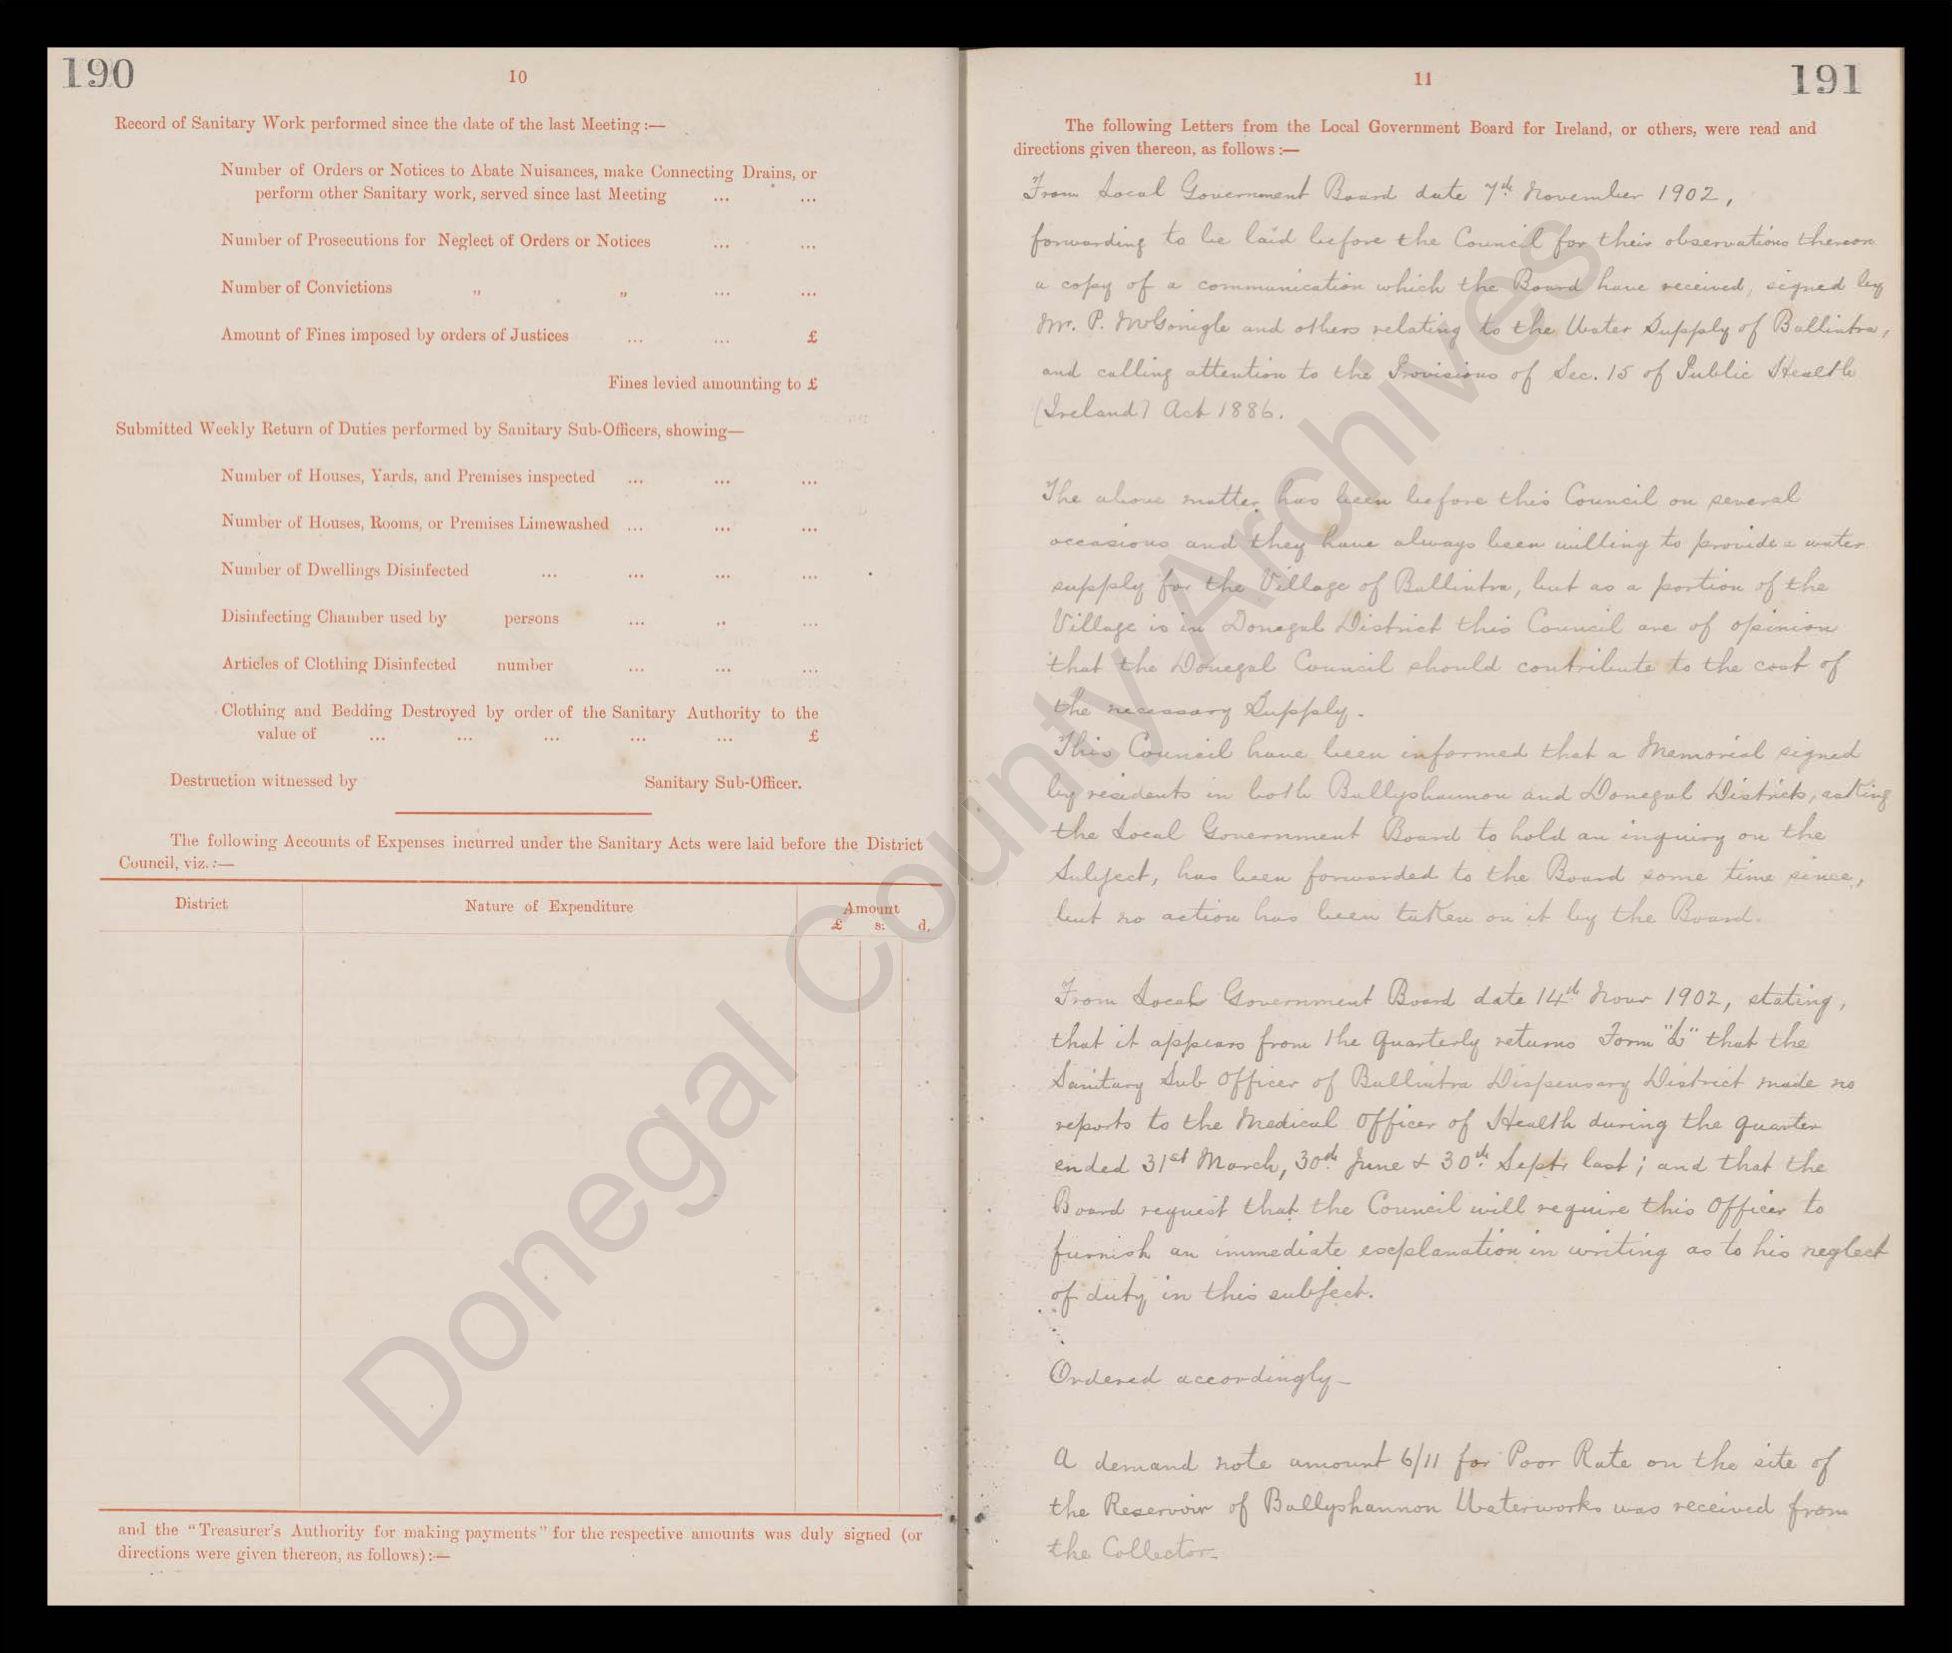 190
10
Record of Sanitary Work performed since the date of the last Meeting :—
Number of Orders or Notices to Abate Nuisances, make Connecting Drains, or
perform other Sanitary work, served since last Meeting ... ...
Number of Prosecutions for Neglect of Orders or Notices ... ...
Number of Convictions „ „ ... ...
Amount of Fines imposed by orders of Justices ... ... £
Fines levied amounting to £
Submitted Weekly Return of Duties performed by Sanitary Sub-Officers, showing—
Number of Houses, Yards, and Premises inspected ... ... ...
Number of Houses, Rooms, or Premises Limewashed ... ... ...
Number of Dwellings Disinfected ... ... ... ...
Disinfecting Chamber used by persons ... .. ...
Articles of Clothing Disinfected number ... ... ...
Clothing and Bedding Destroyed by order of the Sanitary Authority to the
value of ... ... ... ... ... £
Destruction witnessed by Sanitary Sub-Officer.
The following Accounts of Expenses incurred under the Sanitary Acts were laid before the District
Council, viz. :—
District Nature of Expenditure Amount
£ s. d.
and the "Treasurer's Authority for making payments" for the respective amounts was duly signed (or
directions were given thereon, as follows) :—
11
191
The following Letters from the Local Government Board for Ireland, or others, were read and
directions given thereon, as follows :—
From Local Government Board date 7th November 1902,
forwarding to be laid before the Council for their observations thereon
a copy of a communication which the Board have received, signed by
Mr. P. McGonigle and others relating to the Water Supply of Ballintra,
and calling attention to the Provisions of Sec. 15 of Public Health
(Ireland) Act 1886.
The above matter has been before this Council on several
occasions and they have always been willing to provide a water
supply for the Village of Ballintra, but as a portion of the
Village is in Donegal District this Council are of opinion
that the Donegal Council should contribute to the cost of
the necessary Supply.
This Council have been informed that a Memorial signed
by residents in both Ballyshannon and Donegal Districts, asking
the Local Government Board to hold an inquiry on the
Subject, has been forwarded to the Board some time since,
but no action has been taken on it by the Board.
From Local Government Board date 14th Novr 1902, stating,
that it appears from the Quarterly returns Form that the
Sanitary Sub Officer of Ballintra Dispensary District made no
reports to the Medical Officer of Health during the quarter
ended 31st March, 30th June & 30th Sept. last; and that the
Board request that the Council will require this Officer to
furnish an immediate explanation in writing as to his neglect
of duty in this subject.
Ordered accordingly—
A demand note amount 6/11 for Poor Rate on the site of
the Reservoir of Ballyshannon Waterworks was received from
the Collector—
Donegal County Archives